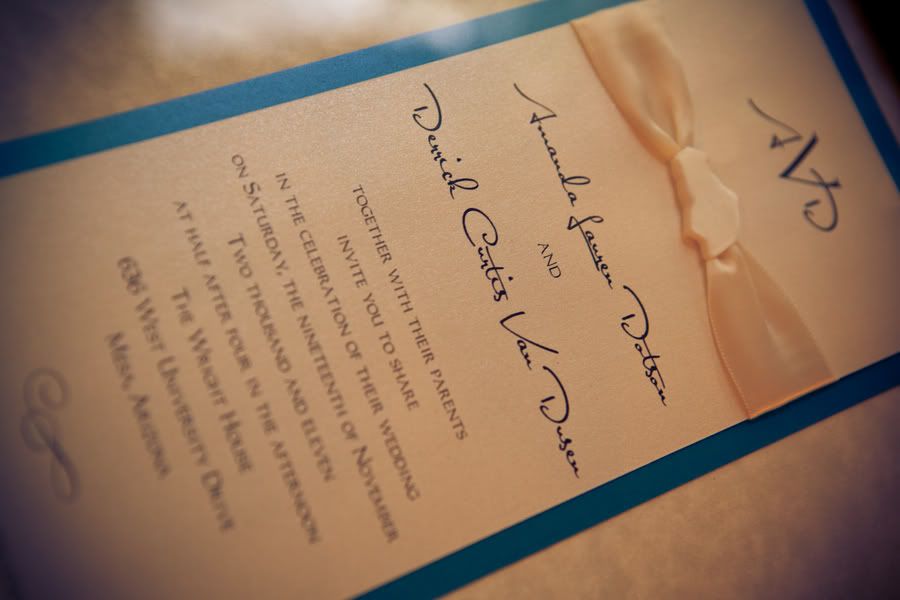 AVD
Amanda Lauren Dotson
AND
Derrick Curtis Van Dusen
TOGETHER WITH THEIR PARENTS
INVITE YOU TO SHARE
IN THE CELEBRATION OF THEIR WEDDING
ON SATURDAY, THE NINETEENTH OF NOVEMBER
TWO THOUSAND AND ELEVEN
AT HALF AFTER FOUR IN THE AFTERNOON
THE WRIGHT HOUSE
636 WEST UNIVERSITY DRIVE
MESA, ARIZONA